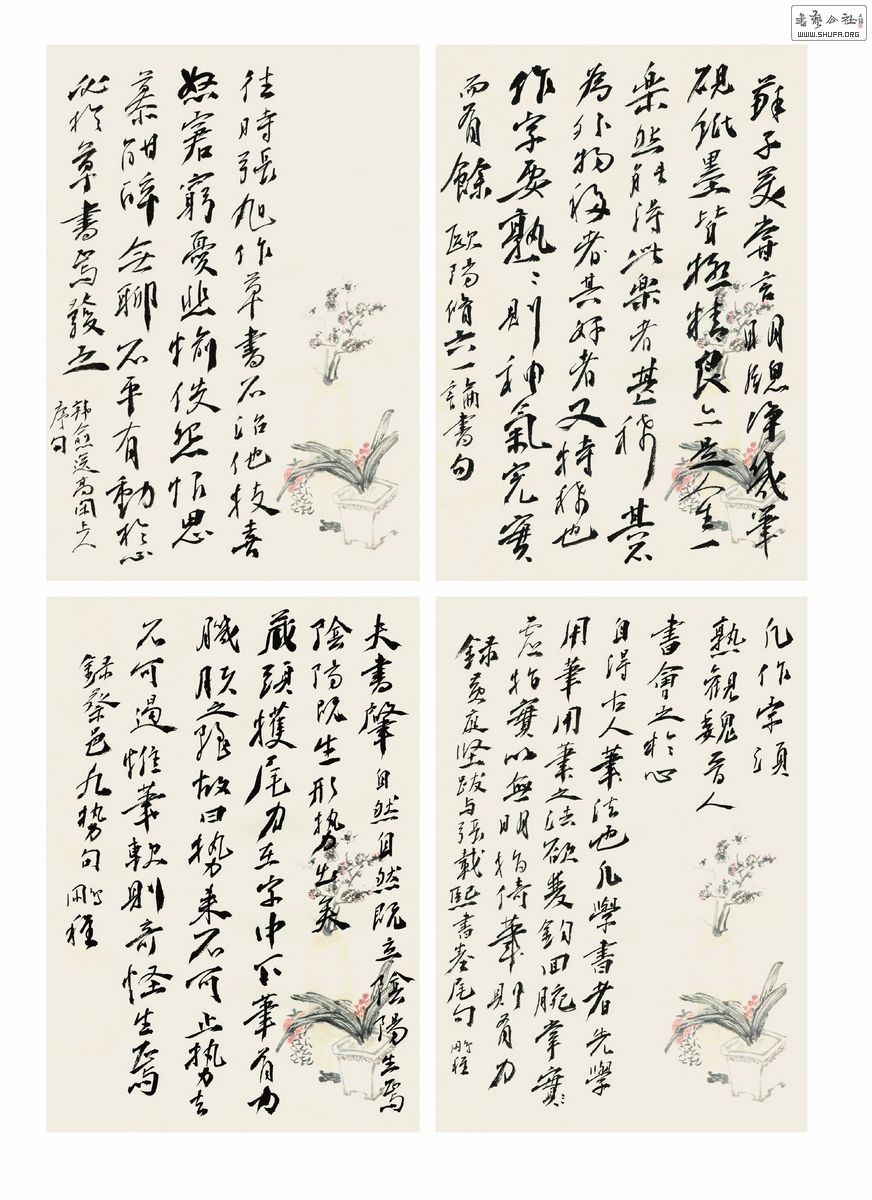 書藝公社
WWW.SHUFA.ORG
蘇子美嘗言明窓淨几筆
硯紙墨皆極精良亦是人生一
樂然能得此樂者甚稀其不
為外物移者其好者又特稀也
作字要熟〻則神氣完實
而有餘 歐陽脩六一論書句
往時張旭作草書不治他技喜
怒窘窮憂悲愉佚怨恨思
慕酣醉無聊不平有動於心
必於草書焉發之
韩愈送高闲上人
序句
凡作字須
熟觀魏晋人
書會之於心
自得古人筆法也凡學書者先學
用筆用筆之法欲雙鈎回腕掌實〻
虚指實以無明指倚筆則有力
録黄庭堅跋与張載熙書卷尾句
夫書肇自然自然既立陰陽生焉
陰陽既生形勢出矣
藏頭護尾力在字中下筆有力
肌膚之麗故曰势来不可止势去
不可遏惟筆軟則奇怪生焉
録蔡邕九势句